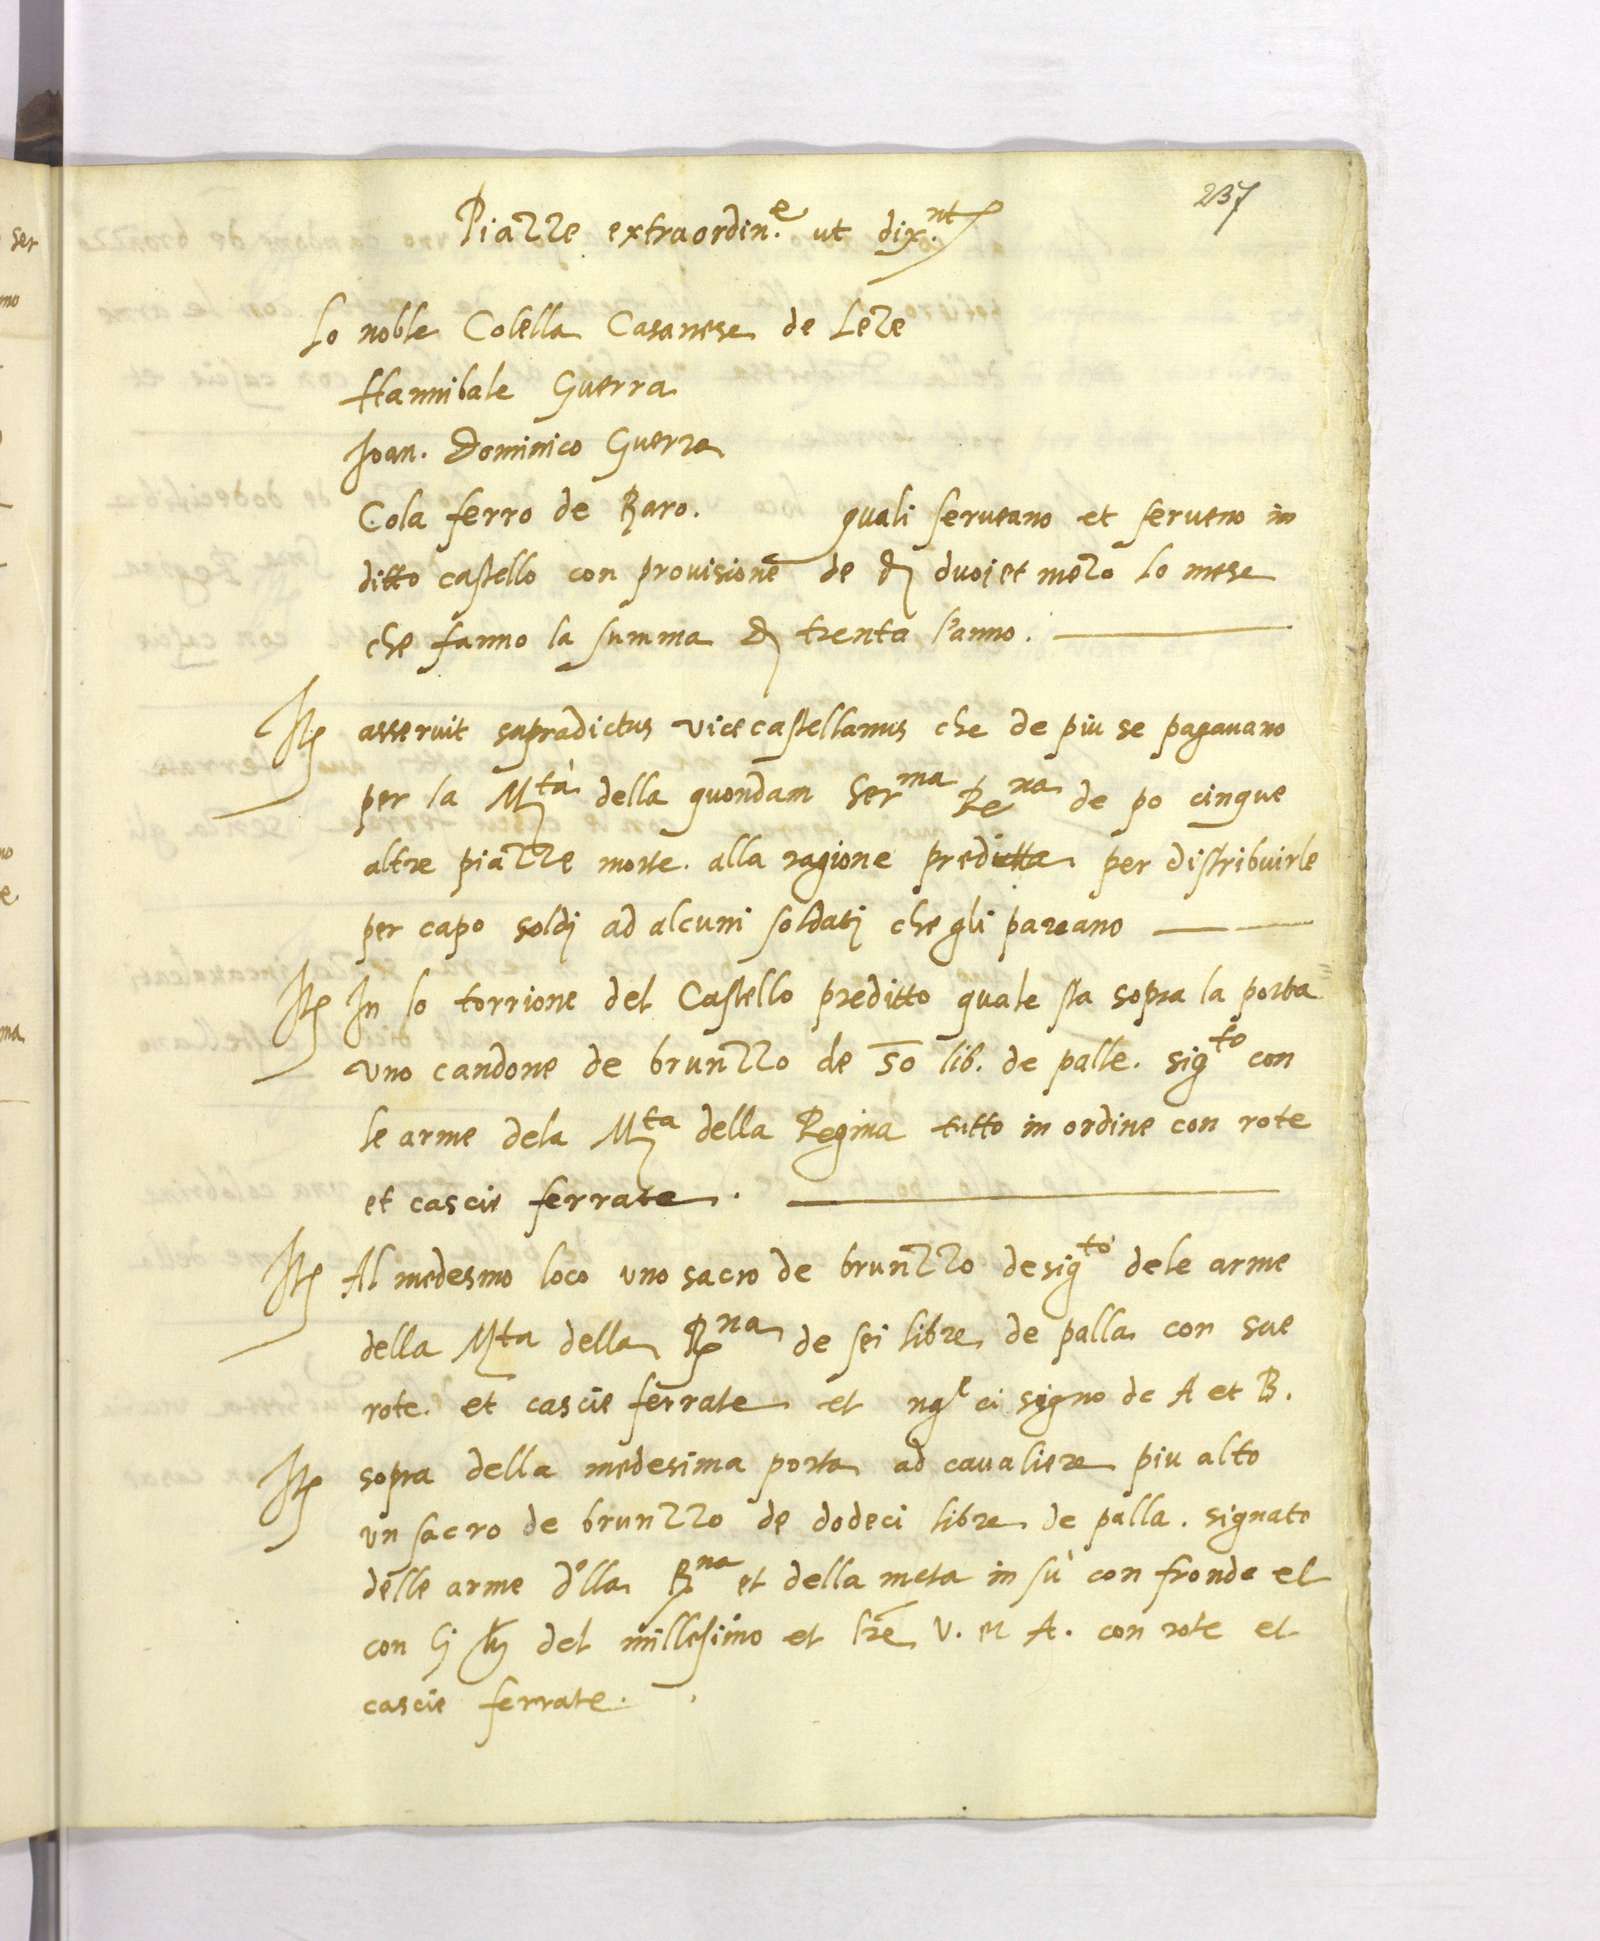 237
Piazze extraordin.e ut dix.nt
Lo noble Colella Casanese de Leze
Hannibale Guerra
Joan. Dominico Guerra
Cola ferro de Baro. quali serveano et serveno in
ditto castello con provisione de duoi et mezo lo mese
che fanno la summa trenta l'anno.
It asseruit supradictus vicecastellanus che de piu se pagavano
per la Mtà della quondam Serma Rena de po cinque
altre piazze morte. alla ragione preditta per distribuirle
per capo soldi ad alcuni soldati che gli pareano
It In lo torrione del Castello preditto quale sta sopra la porta
uno candone de brunzzo de 50 lib. de palle. sigto con
le arme dela Mta della Regina tutto in ordine con rote
et cascie ferrate.
It Al medesmo loco uno sacro de brunzzo desigto dele arme
della Mta della Rna de sei libre de palla con sue
rote. et cascie ferrate et ci signo de A et B.
It sopra della medesima porta ad cavaliere piu alto
un sacro de brunzzo de dodeci libre de palla. signato
delle arme d'lla Rna et della meta in sù con fronde et
con li del millesimo et lre V. et A. con rote et
cascie ferrate.
ser
mo
no
e
ma